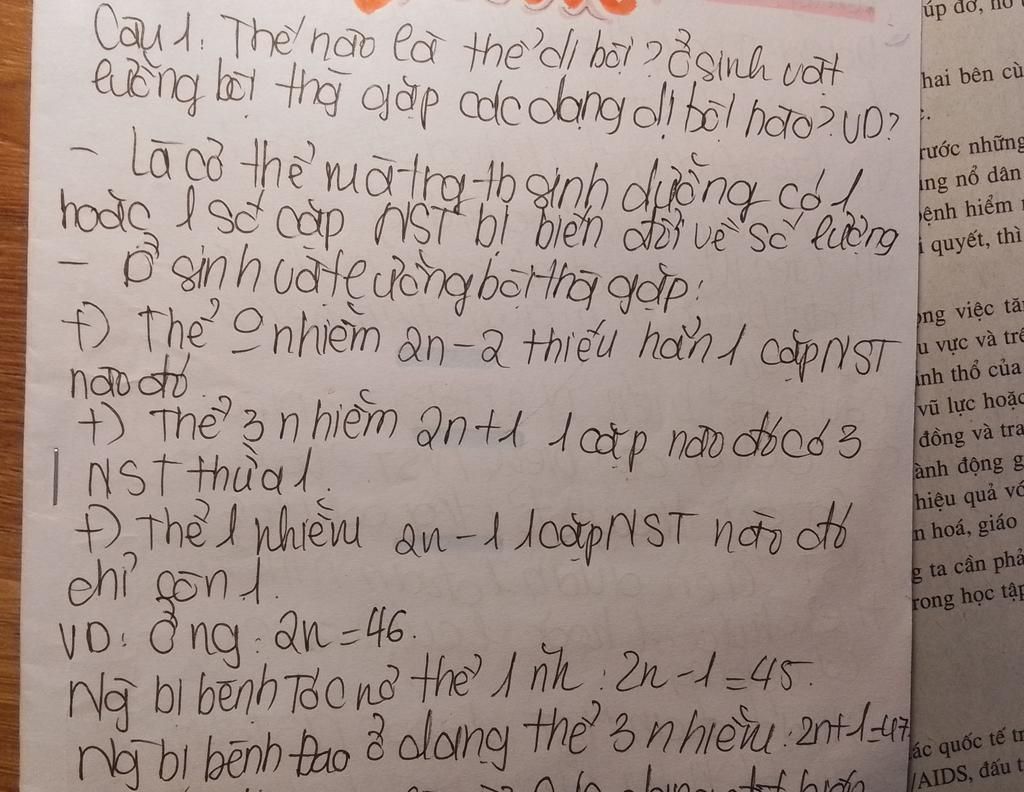 Câu 1. Thế nào là thể dị bội? Ở sinh vật
lưỡng bội thg gặp các dạng dị bội nào? VD?
- Là cơ thể mà trg tb sinh dưỡng có 1
hoặc 1 số cặp NST bị biến đổi về số lượng
- Ở sinh vật lưỡng bội thg gặp:
+) Thể 0 nhiễm 2n-2 thiếu hẳn 1 cặp NST
nào đó.
+) Thể 3 nhiễm 2n+1 1 cặp nào đó có 3
NST thừa 1.
+) Thể 1 nhiễm 2n-1 1 cặp NST nào đó
chỉ còn 1.
VD: Ở ng: 2n=46.
Ng bị bệnh Tớcnơ thể 1 nh: 2n-1=45.
Ng bị bệnh Đao ở dạng thể 3 nhiễm: 2n+1=47
úp đỡ, hỗ
hai bên cù
rước những
ng nổ dân
bệnh hiểm
quyết, thì
ong việc tă
u vực và tr
nh thổ của
vũ lực hoặc
đồng và tra
ành động g
hiệu quả vớ
n hoá, giáo
g ta cần phả
rong học tập
ác quốc tế tr
/AIDS, đấu t